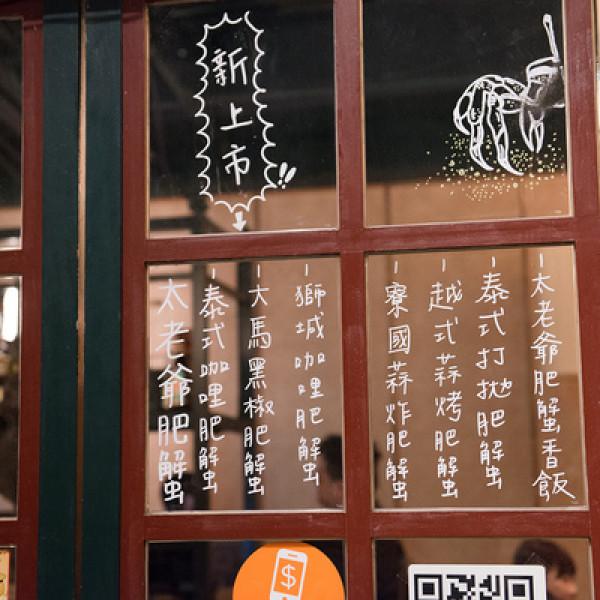 新上市!!
-太老爺肥蟹香飯
-泰式打拋肥蟹
-越式蒜烤肥蟹
-寮國蒜炸肥蟹
-獅城咖哩肥蟹
-大馬黑椒肥蟹
-泰式咖哩肥蟹
太老爺肥蟹
$